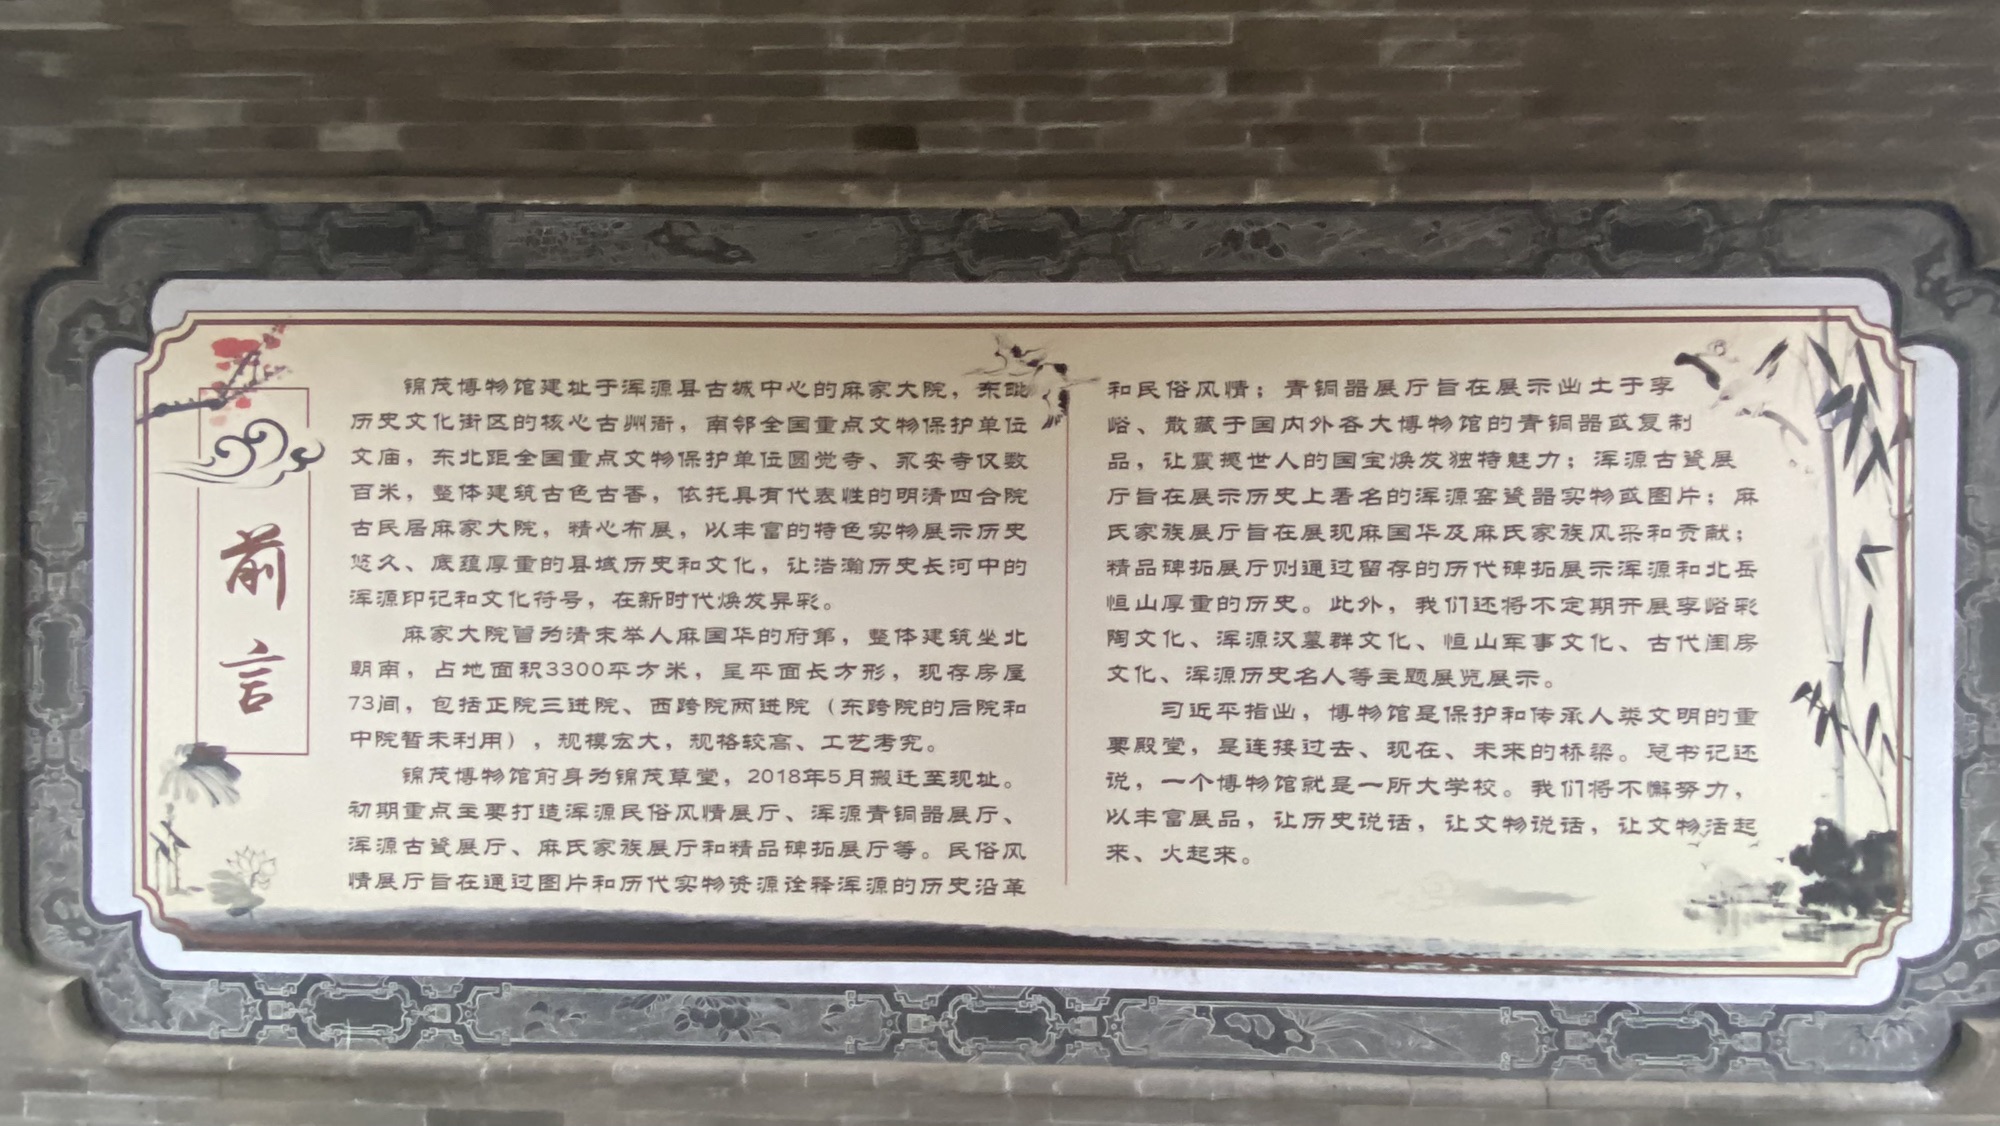 前言
锦茂博物馆建址于浑源县古城中心的麻家大院，东毗
历史文化街区的核心古州衙，南邻全国重点文物保护单位
文庙，东北距全国重点文物保护单位圆觉寺、永安寺仅数
百米，整体建筑古色古香，依托具有代表性的明清四合院
古民居麻家大院，精心布展，以丰富的特色实物展示历史
悠久、底蕴厚重的县域历史和文化，让浩瀚历史长河中的
浑源印记和文化符号，在新时代焕发异彩。
麻家大院曾为清末举人麻国华的府第，整体建筑坐北
朝南，占地面积3300平方米，呈平面长方形，现存房屋
73间，包括正院三进院、西跨院两进院（东跨院的后院和
中院暂未利用），规模宏大，规格较高、工艺考究。
锦茂博物馆前身为锦茂草堂，2018年5月搬迁至现址。
初期重点主要打造浑源民俗风情展厅、浑源青铜器展厅、
浑源古瓷展厅、麻氏家族展厅和精品碑拓展厅等。民俗风
情展厅旨在通过图片和历代实物资源诠释浑源的历史沿革
和民俗风情；青铜器展厅旨在展示出土于李
峪、散藏于国内外各大博物馆的青铜器或复制
品，让震撼世人的国宝焕发独特魅力；浑源古瓷展
厅旨在展示历史上著名的浑源窑瓷器实物或图片；麻
氏家族展厅旨在展现麻国华及麻氏家族风采和贡献；
精品碑拓展厅则通过留存的历代碑拓展示浑源和北岳
恒山厚重的历史。此外，我们还将不定期开展李峪彩
陶文化、浑源汉墓群文化、恒山军事文化、古代闺房
文化、浑源历史名人等主题展览展示。
习近平指出，博物馆是保护和传承人类文明的重
要殿堂，是连接过去、现在、未来的桥梁。总书记还
说，一个博物馆就是一所大学校。我们将不懈努力，
以丰富展品，让历史说话，让文物说话，让文物活起
来、火起来。